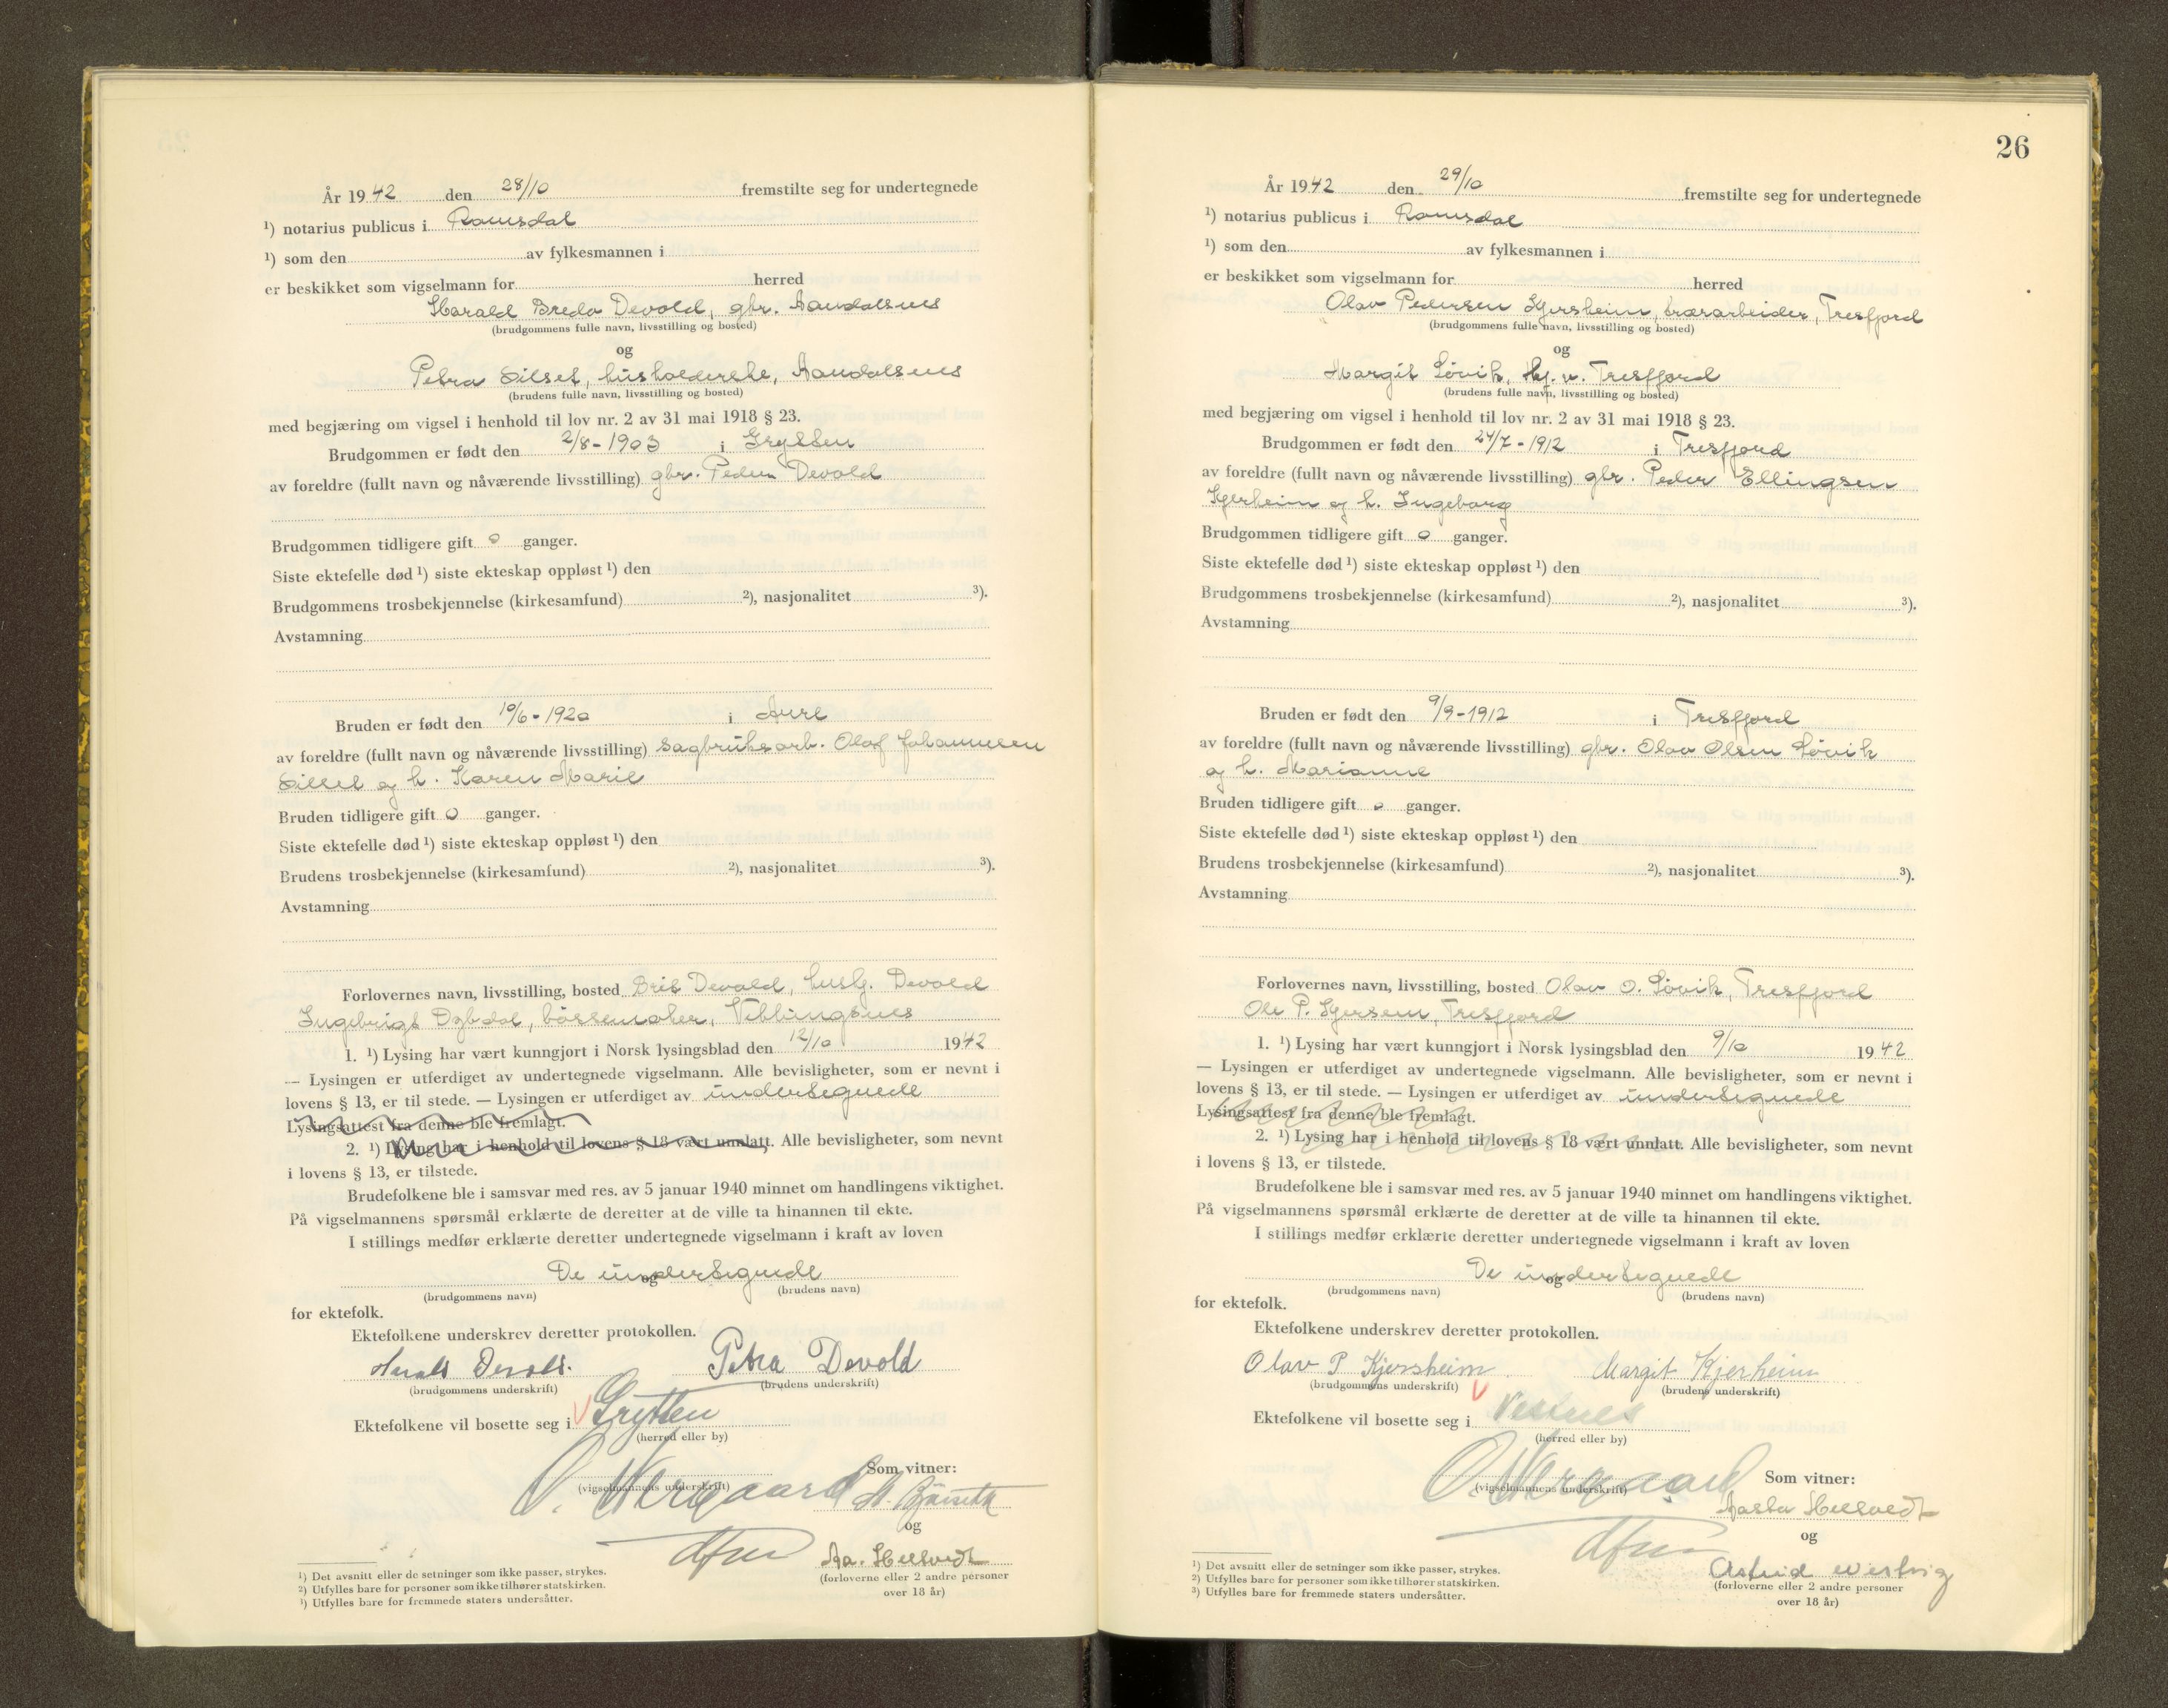 År 1942 den 28/10 fremstilte seg for undertegnede
¹) notarius publicus i Romsdal
¹) som den av fylkesmannen i
er beskikket som vigselmann for herred
Harald Breda Devold, gbr. Aandalsnes
(brudgommens fulle navn, livsstilling og bosted)
og
Petra Silset, husholderske, Aandalsnes
(brudens fulle navn, livsstilling og bosted)
med begjæring om vigsel i henhold til lov nr. 2 av 31 mai 1918 § 23.
Brudgommen er født den 2/8-1903 i Grytten
av foreldre (fullt navn og nåværende livsstilling) gbr. Peder Devold
Brudgommen tidligere gift 0 ganger.
Siste ektefelle død ¹) siste ekteskap oppløst ¹) den
Brudgommens trosbekjennelse (kirkesamfund) ²), nasjonalitet ³).
Avstamning
Bruden er født den 10/6-1920 i Aure
av foreldre (fullt navn og nåværende livsstilling) sagbruksarb. Olaf Johannesen
Silset og h. Karen Marie
Bruden tidligere gift 0 ganger.
Siste ektefelle død ¹) siste ekteskap oppløst ¹) den
Brudens trosbekjennelse (kirkesamfund) ²), nasjonalitet ³).
Avstamning
Forlovernes navn, livsstilling, bosted Devold, Devold
børsemaker, Veblungsnes
1. ¹) Lysing har vært kunngjort i Norsk lysingsblad den 12/10 1942
— Lysingen er utferdiget av undertegnede vigselmann. Alle bevisligheter, som er nevnt i
lovens § 13, er til stede. — Lysingen er utferdiget av undertegnede
Lysingsattest fra denne ble fremlagt.
2. ¹) Lysing har i henhold til lovens § 18 vært unnlatt. Alle bevisligheter, som nevnt
i lovens § 13, er tilstede.
Brudefolkene ble i samsvar med res. av 5 januar 1940 minnet om handlingens viktighet.
På vigselmannens spørsmål erklærte de deretter at de ville ta hinannen til ekte.
I stillings medfør erklærte deretter undertegnede vigselmann i kraft av loven
De undertegnede
og
(brudgommens navn) (brudens navn)
for ektefolk.
Ektefolkene underskrev deretter protokollen.
Harald Devold. Petra Devold
(brudgommens underskrift) (brudens underskrift)
Ektefolkene vil bosette seg i Grytten
(herred eller by)
Som vitner:
(vigselmannens underskrift)
og
Aa.
(forloverne eller 2 andre personer
over 18 år)
¹) Det avsnitt eller de setninger som ikke passer, strykes.
²) Utfylles bare for personer som ikke tilhører statskirken.
³) Utfylles bare for fremmede staters undersåtter.
26
År 1942 den 29/10 fremstilte seg for undertegnede
¹) notarius publicus i Romsdal
¹) som den av fylkesmannen i
er beskikket som vigselmann for herred
Olav Pedersen Kjersheim, Tresfjord
(brudgommens fulle navn, livsstilling og bosted)
og
Margit Løvik, Tresfjord
(brudens fulle navn, livsstilling og bosted)
med begjæring om vigsel i henhold til lov nr. 2 av 31 mai 1918 § 23.
Brudgommen er født den 24/7-1912 i Tresfjord
av foreldre (fullt navn og nåværende livsstilling) gbr. Peder Ellingsen
Kjerheim og h. Ingeborg
Brudgommen tidligere gift 0 ganger.
Siste ektefelle død ¹) siste ekteskap oppløst ¹) den
Brudgommens trosbekjennelse (kirkesamfund) ²), nasjonalitet ³).
Avstamning
Bruden er født den 9/9-1912 i Tresfjord
av foreldre (fullt navn og nåværende livsstilling) gbr. Olav Olsen Løvik
og h. Marianne
Bruden tidligere gift 0 ganger.
Siste ektefelle død ¹) siste ekteskap oppløst ¹) den
Brudens trosbekjennelse (kirkesamfund) ²), nasjonalitet ³).
Avstamning
Forlovernes navn, livsstilling, bosted Olav O. Løvik, Tresfjord
Ole P. Kjersem, Tresfjord
1. ¹) Lysing har vært kunngjort i Norsk lysingsblad den 9/10 1942
— Lysingen er utferdiget av undertegnede vigselmann. Alle bevisligheter, som er nevnt i
lovens § 13, er til stede. — Lysingen er utferdiget av undertegnede
Lysingsattest fra denne ble fremlagt.
2. ¹) Lysing har i henhold til lovens § 18 vært unnlatt. Alle bevisligheter, som nevnt
i lovens § 13, er tilstede.
Brudefolkene ble i samsvar med res. av 5 januar 1940 minnet om handlingens viktighet.
På vigselmannens spørsmål erklærte de deretter at de ville ta hinannen til ekte.
I stillings medfør erklærte deretter undertegnede vigselmann i kraft av loven
De undertegnede
og
(brudgommens navn) (brudens navn)
for ektefolk.
Ektefolkene underskrev deretter protokollen.
Olav P Kjersheim Margit Kjerheim
(brudgommens underskrift) (brudens underskrift)
Ektefolkene vil bosette seg i Vestnes
(herred eller by)
Som vitner:
(vigselmannens underskrift)
og
Astrid
(forloverne eller 2 andre personer
over 18 år)
¹) Det avsnitt eller de setninger som ikke passer, strykes.
²) Utfylles bare for personer som ikke tilhører statskirken.
³) Utfylles bare for fremmede staters undersåtter.